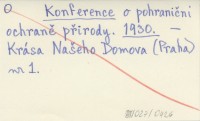 Konference o pohraniční
ochraně přírody. 1930. —
Krása Našeho Domova (Praha)
nr 1.